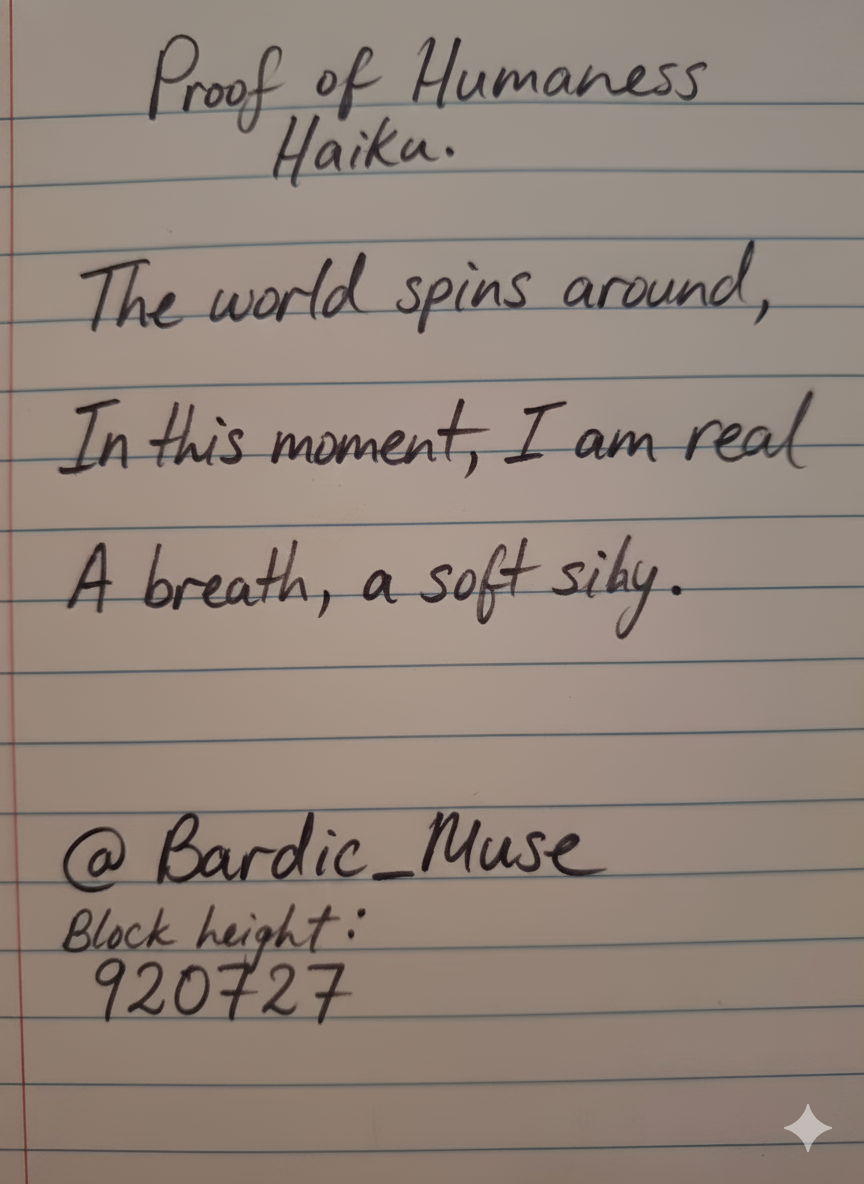 Proof of Humaness
Haiku.
The world spins around,
In this moment, I am real
A breath, a soft sihy.
@Bardic_Muse
Block height:
920727